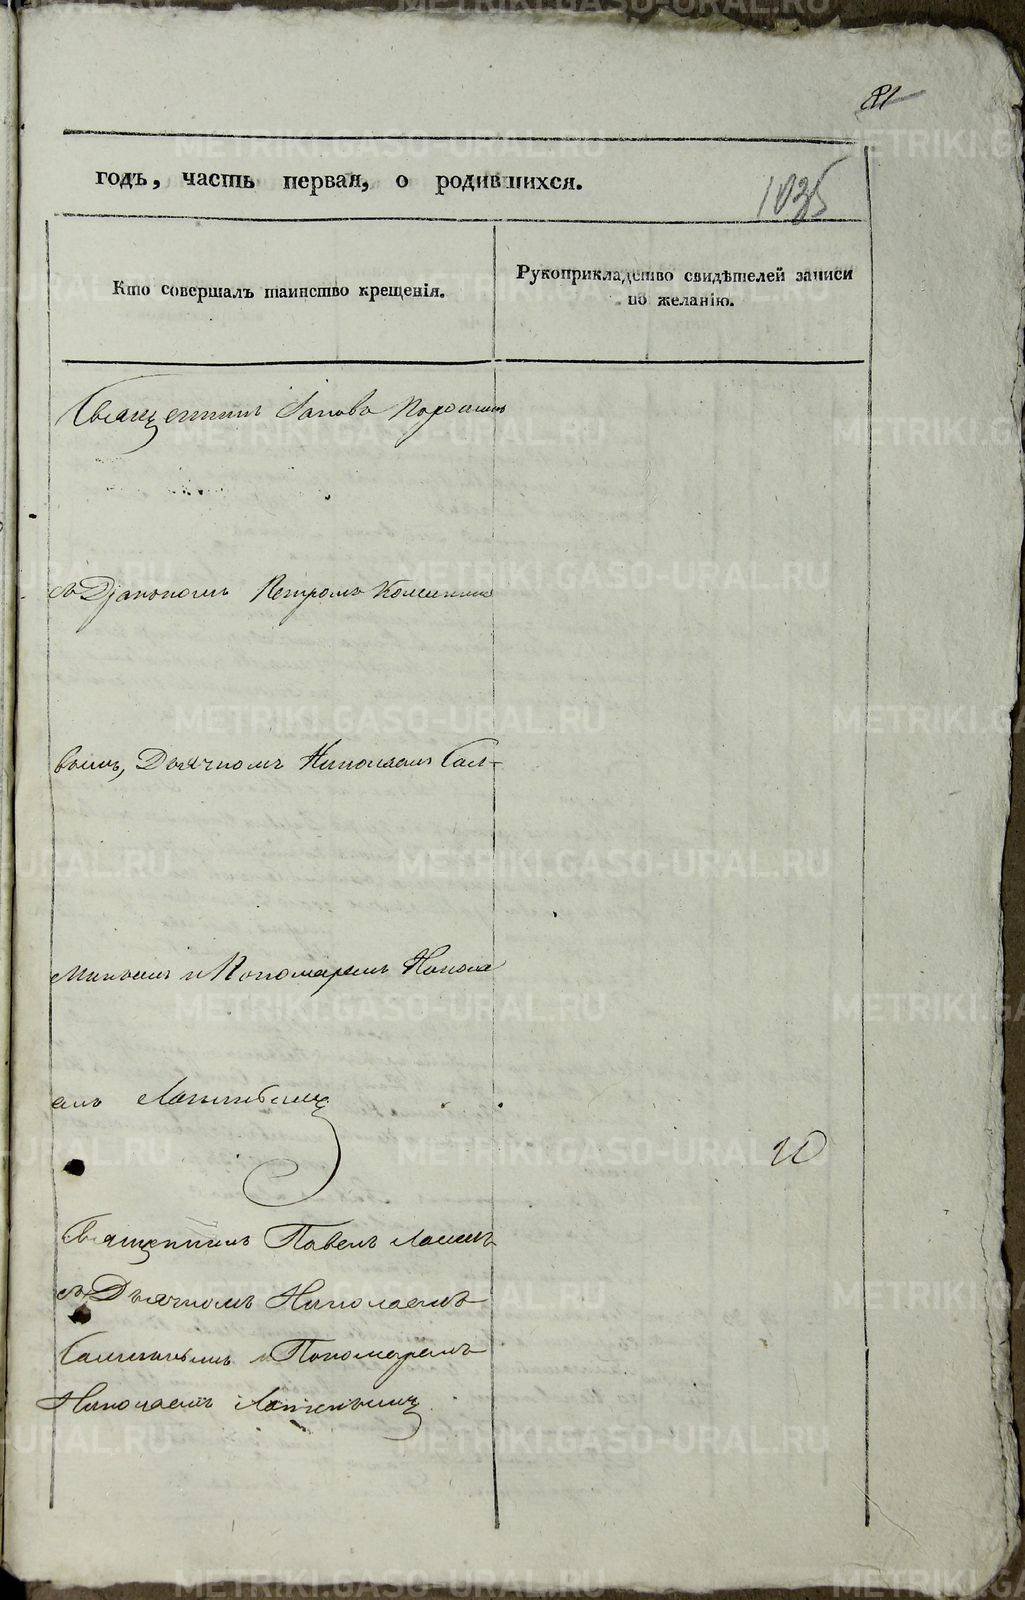 81
годъ, часть первая, о родившихся.
1035
Кто совершалъ таинство крещенія.
Рукоприкладство свидѣтелей записи
по желанію.
Священникъ Іаковъ
съ Діакономъ Петромъ
вымъ, Дьячкомъ Николаемъ Сал-
миновымъ и Пономаремъ Никола
емъ
20
Священникъ Павелъ
съ Дьячкомъ Николаемъ
и Пономаремъ
Николаемъ
METRIKI.GASO-URAL.RU